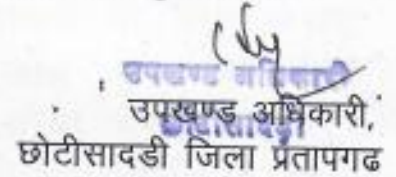 उपखण्ड अधिकारी
उपखण्ड अधिकारी,
छोटीसादडी
छोटीसादडी जिला प्रतापगढ